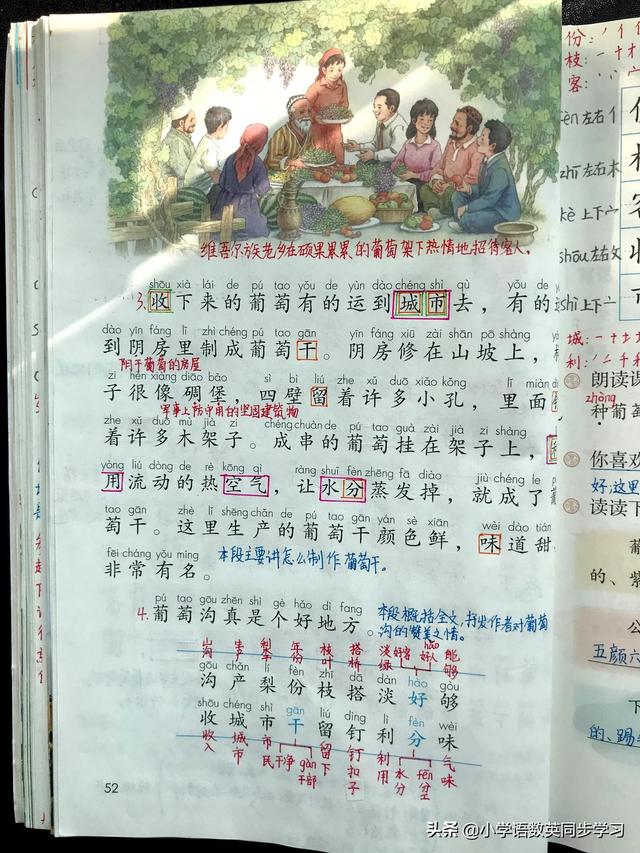 维吾尔族老乡在硕果累累的葡萄架下热情地招待客人。
shōu xià lái de pú tao yǒu de yùn dào chéng shì qù yǒu de y
3.收下来的葡萄有的运到城市去，有的运
dào yīn fáng lǐ zhì chéng pú tao gān yīn fáng xiū zài shān pō shàng
到阴房里制成葡萄干。阴房修在山坡上，
阴干葡萄的房屋
zi hěn xiàng diāo bǎo sì bì liú zhe xǔ duō xiǎo kǒng lǐ miàn
子很像碉堡，四壁留着许多小孔，里面
军事上防守用的坚固建筑物
zhe xǔ duō mù jià zi chéng chuàn de pú tao guà zài jià zi shàng
着许多木架子。成串的葡萄挂在架子上，
yòng liú dòng de rè kōng qì ràng shuǐ fèn zhēng fā diào jiù chéng le
用流动的热空气，让水分蒸发掉，就成了葡
tao gān zhè lǐ shēng chǎn de pú tao gān yán sè xiān wèi dào tián
萄干。这里生产的葡萄干颜色鲜，味道甜，
fēi cháng yǒu míng
非常有名。
本段主要讲怎么制作葡萄干。
pú tao gōu zhēn shì gè hǎo dì fang
4.葡萄沟真是个好地方。
本段概括全文，抒发作者对葡萄
沟的赞美之情。
山沟 生产 梨 年份 枝叶 搭桥 淡绿 好客 hào 好人 hǎo 能够
gōu chǎn lí fèn zhī dā dàn hào gòu
沟产梨份枝搭淡好够
shōu chéng shì gān liú dīng lì fēn wèi
收城市干留钉利分味
收入 城市 市民 干净 gàn 干部 留下 钉扣子 利用 水分 fēn 分工 气味
52
份：
枝：一十才
客：
fèn 左右 亻
zhī 左右 木
kè 上下 宀
shōu 左右 攵
shì 上下 亠
城：一十土
利：
朗读课
zhòng
种葡萄
你喜欢
好，这里
读读下
葡
的、紫
公
五颜六
下
的、踢
头条 @小学语数英同步学习